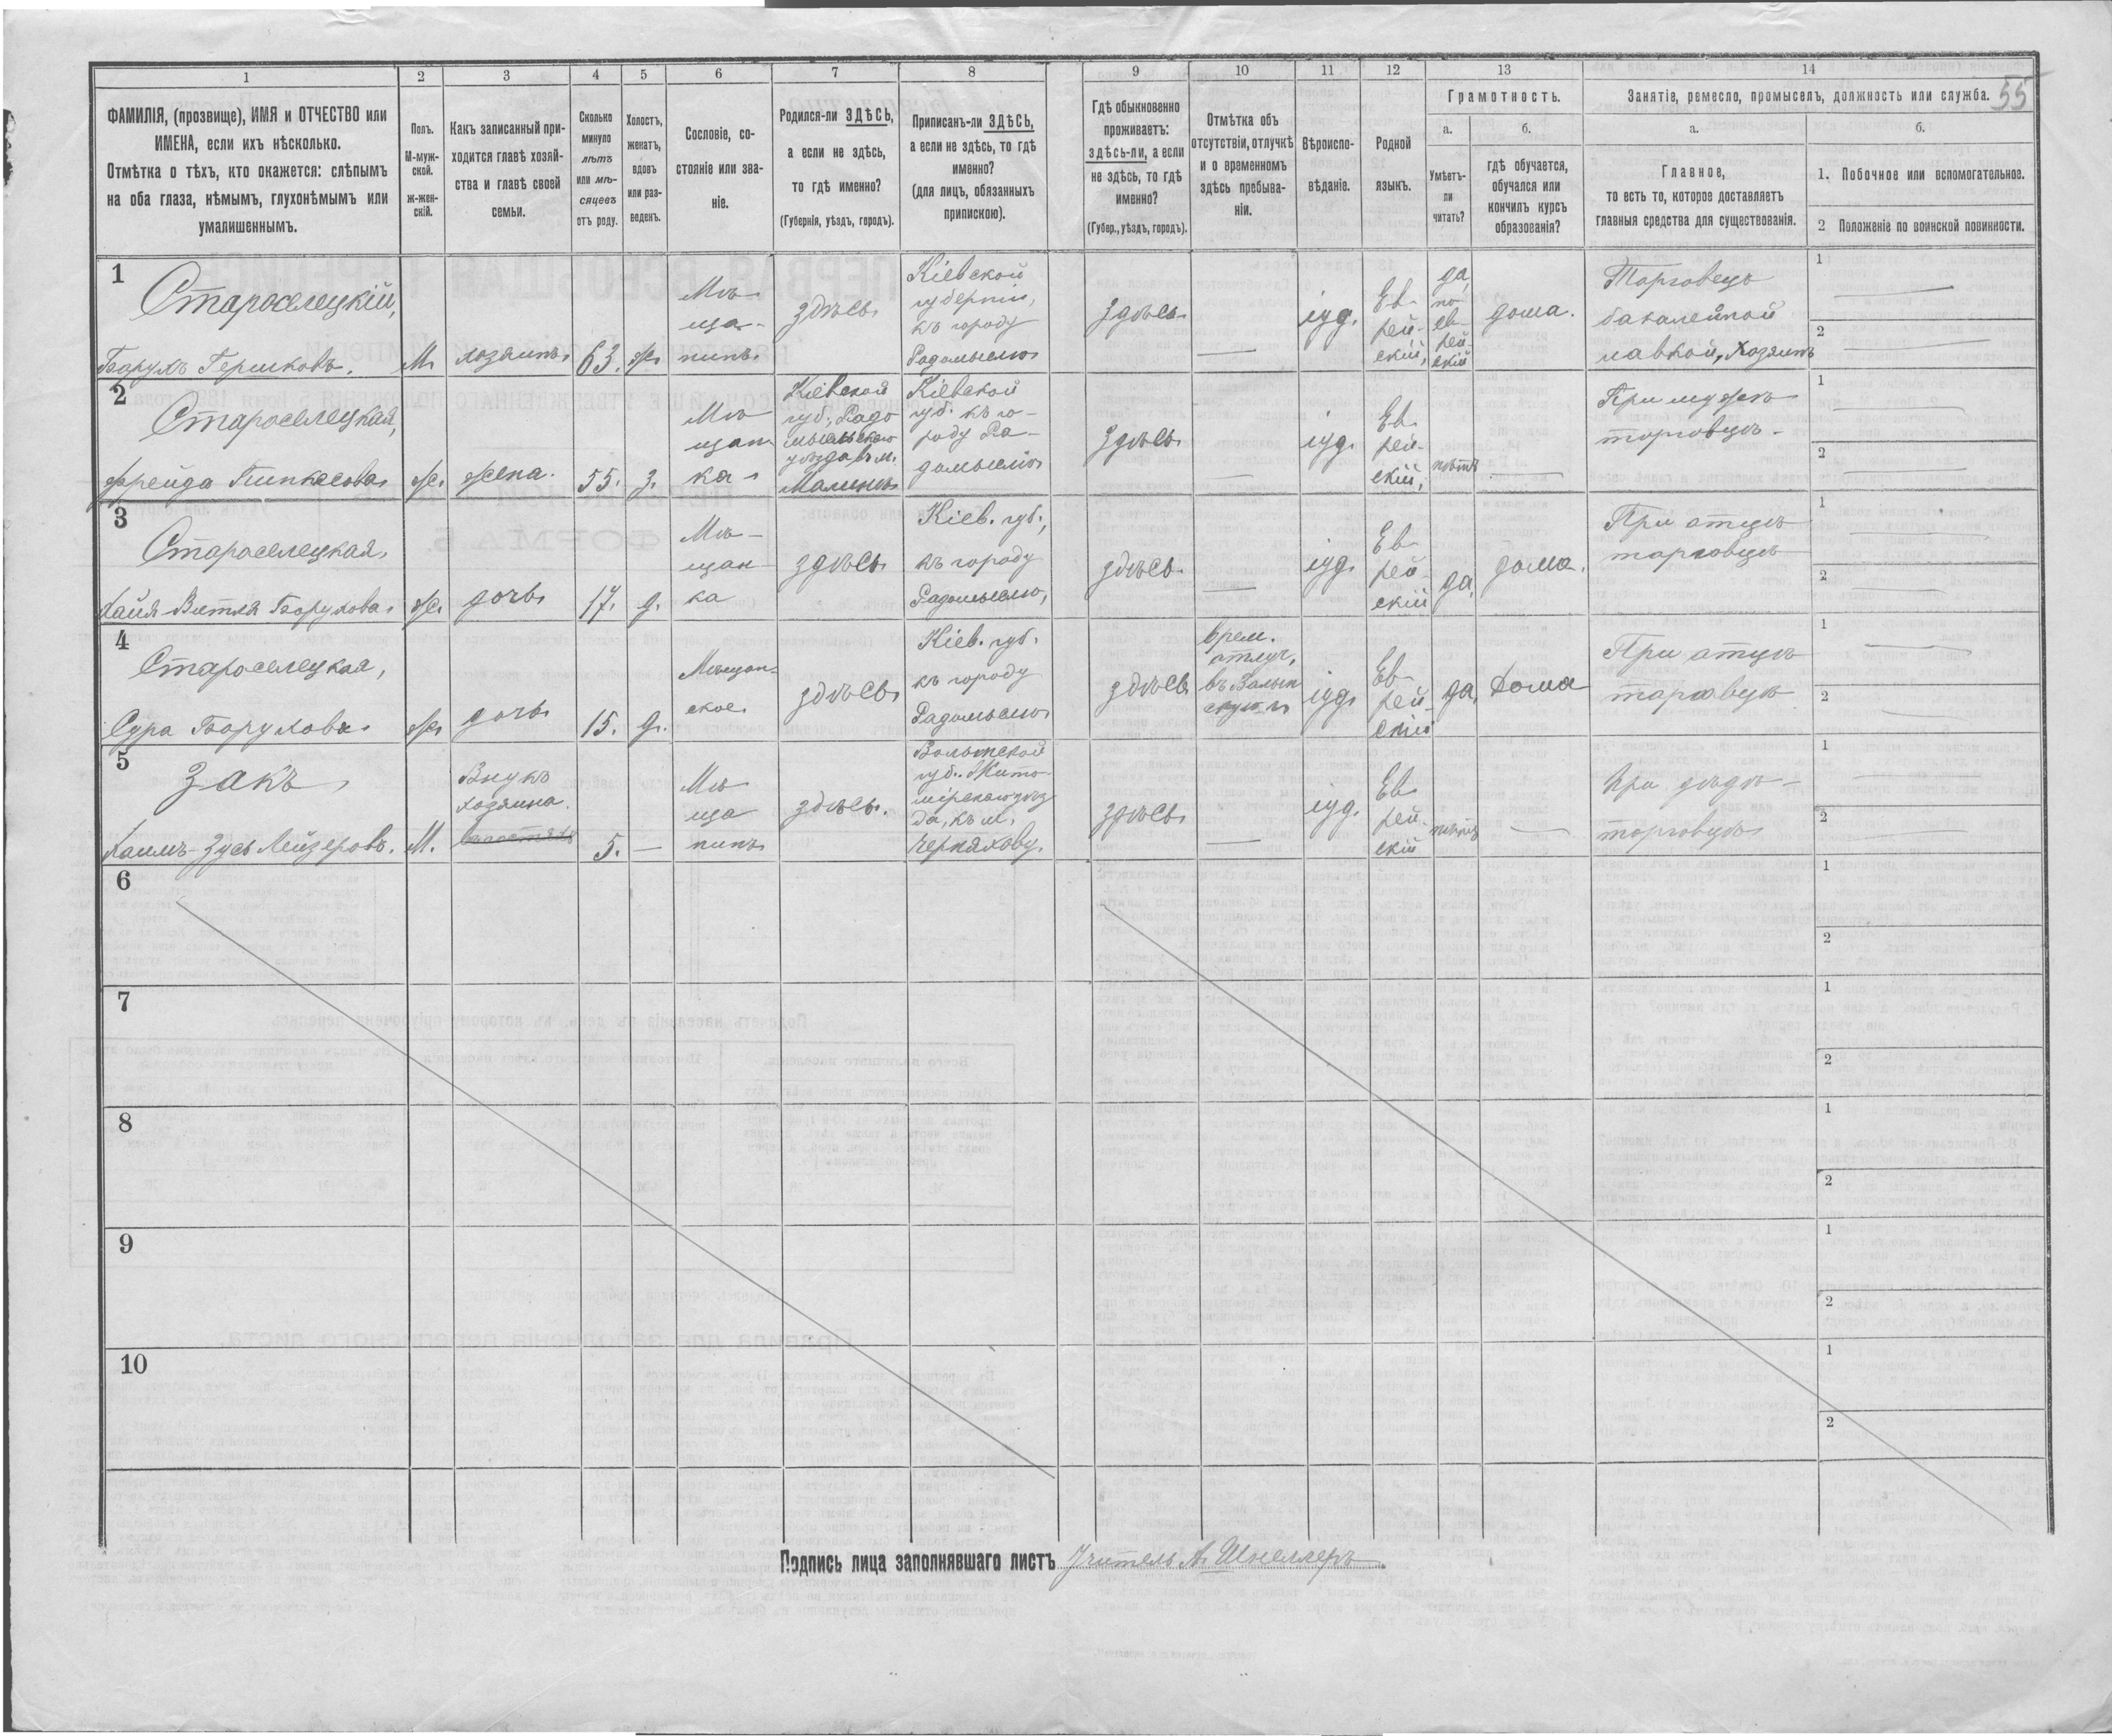 55
1 2 3 4 5 6 7 8 9 10 11 12 13 14
ФАМИЛІЯ, (прозвище), ИМЯ и ОТЧЕСТВО или
ИМЕНА, если ихъ нѣсколько.
Отмѣтка о тѣхъ, кто окажется: слѣпымъ
на оба глаза, нѣмымъ, глухонѣмымъ или
умалишеннымъ.
Полъ.
М-муж-
ской.
ж-жен-
скій.
Какъ записанный при-
ходится главѣ хозяй-
ства и главѣ своей
семьи.
Сколько
минуло
лѣтъ
или мѣ-
сяцевъ
отъ роду.
Холостъ,
женатъ,
вдовъ
или раз-
веденъ.
Сословіе, со-
стояніе или зва-
ніе.
Родился-ли ЗДѢСЬ,
а если не здѣсь,
то гдѣ именно?
(Губернія, уѣздъ, городъ).
Приписанъ-ли ЗДѢСЬ,
а если не здѣсь, то гдѣ
именно?
(для лицъ, обязанныхъ
припискою).
Гдѣ обыкновенно
проживаетъ:
здѣсь-ли, а если
не здѣсь, то гдѣ
именно?
(Губер., уѣздъ, городъ).
Отмѣтка объ
отсутствіи, отлучкѣ
и о временномъ
здѣсь пребыва-
ніи.
Вѣроиспо-
вѣданіе.
Родной
языкъ.
Грамотность.
а.
Умѣетъ-
ли
читать?
б.
гдѣ обучается,
обучался или
кончилъ курсъ
образованія?
Занятіе, ремесло, промыселъ, должность или служба.
а.
Главное,
то есть то, которое доставляетъ
главныя средства для существованія.
б.
1. Побочное или вспомогательное.
2 Положеніе по воинской повинности.
1
Староселецкій,
Борухъ Гершковъ.
М.
хозяинъ
63.
ж.
Мѣ-
ща-
нинъ
здѣсь.
Кіевской
губерніи,
къ городу
Радомыслю
здѣсь.
—
іуд.
Ев-
рей-
скій,
да,
по-
ев-
рей-
скій
дома.
Торговецъ
бакалейной
лавкой, Хозяинъ
1 —
2 —
2
Староселецкая,
Фрейда Пинкасова.
ж.
жена.
55.
з.
Мѣ-
щан-
ка
Кіевской
губ., Радо
мысльскаго
уѣзда, въ м.
Малинѣ
Кіевской
губ. къ го-
роду Ра-
домыслю
здѣсь
—
іуд.
Ев-
рей-
скій,
нѣтъ
—
При мужѣ
торговцѣ.
1 —
2 —
3
Староселецкая,
Хайя-Витля Борухова.
ж.
дочь
17.
д.
Мѣ-
щан-
ка
здѣсь
Кіев. губ.,
къ городу
Радомыслю,
здѣсь.
—
іуд.
Ев-
рей-
скій
да,
дома.
При отцѣ
торговцѣ
1 —
2 —
4
Староселецкая,
Сура Борухова.
ж.
дочь
15.
д.
Мѣщан-
ское.
здѣсь
Кіев. губ.
къ городу
Радомыслю
здѣсь
врем.
отлуч.
въ Волын
скую г.
іуд.
Ев-
рей-
скій
да,
Дома
При отцѣ
торговцѣ
1 —
2 —
5
Закъ,
Хаимъ-Зусь Лейзеровъ.
М.
Внукъ
хозяина.
5.
—
Мѣ
ща
нинъ
здѣсь.
Волынской
губ. Жито-
мірскаго уѣз
да, къ м.
Черняхову.
здѣсь
—
іуд.
Ев-
рей-
скій
нѣтъ
—
При дѣдѣ
торговцѣ
1 —
2 —
6
1
2
7
1
2
8
1
2
9
1
2
10
1
2
Подпись лица заполнявшаго листъ Учитель А. Шнеллеръ